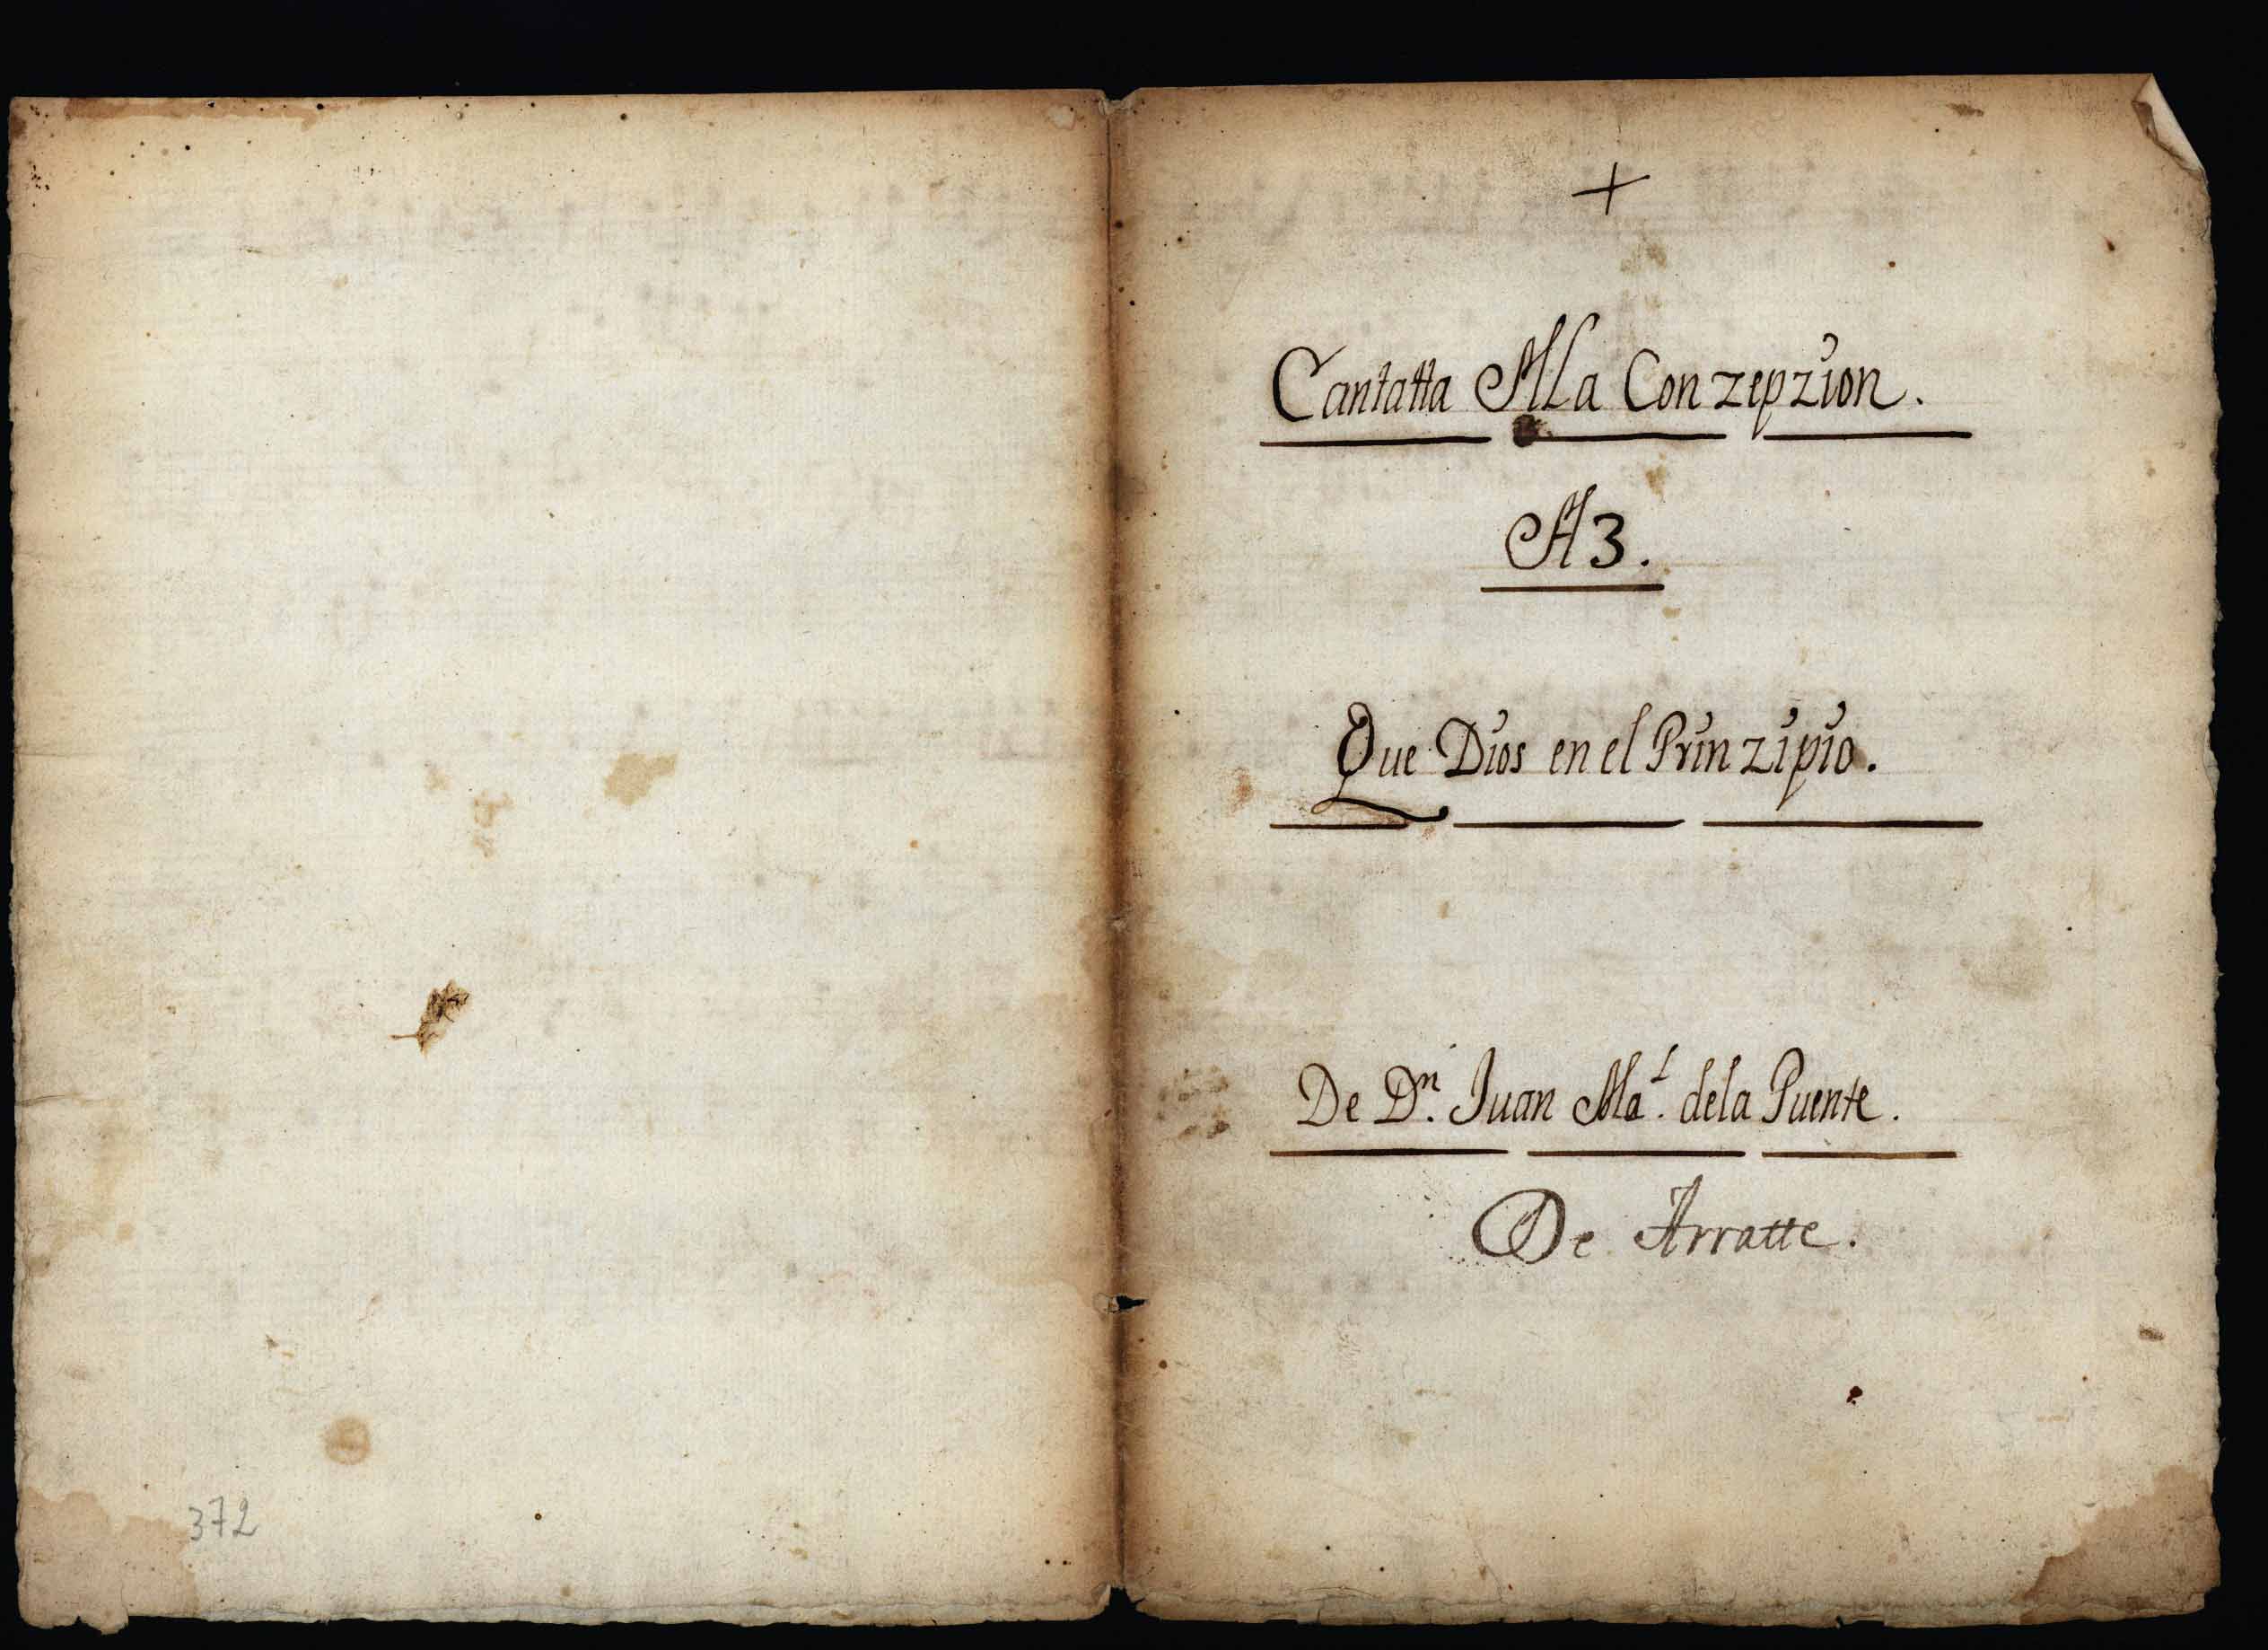 372
+
Cantatta A La Conzepzion.
A 3.
Que Dios en el Prinzipio.
De Dn. Juan Ml. de la Puente.
De Arratte.